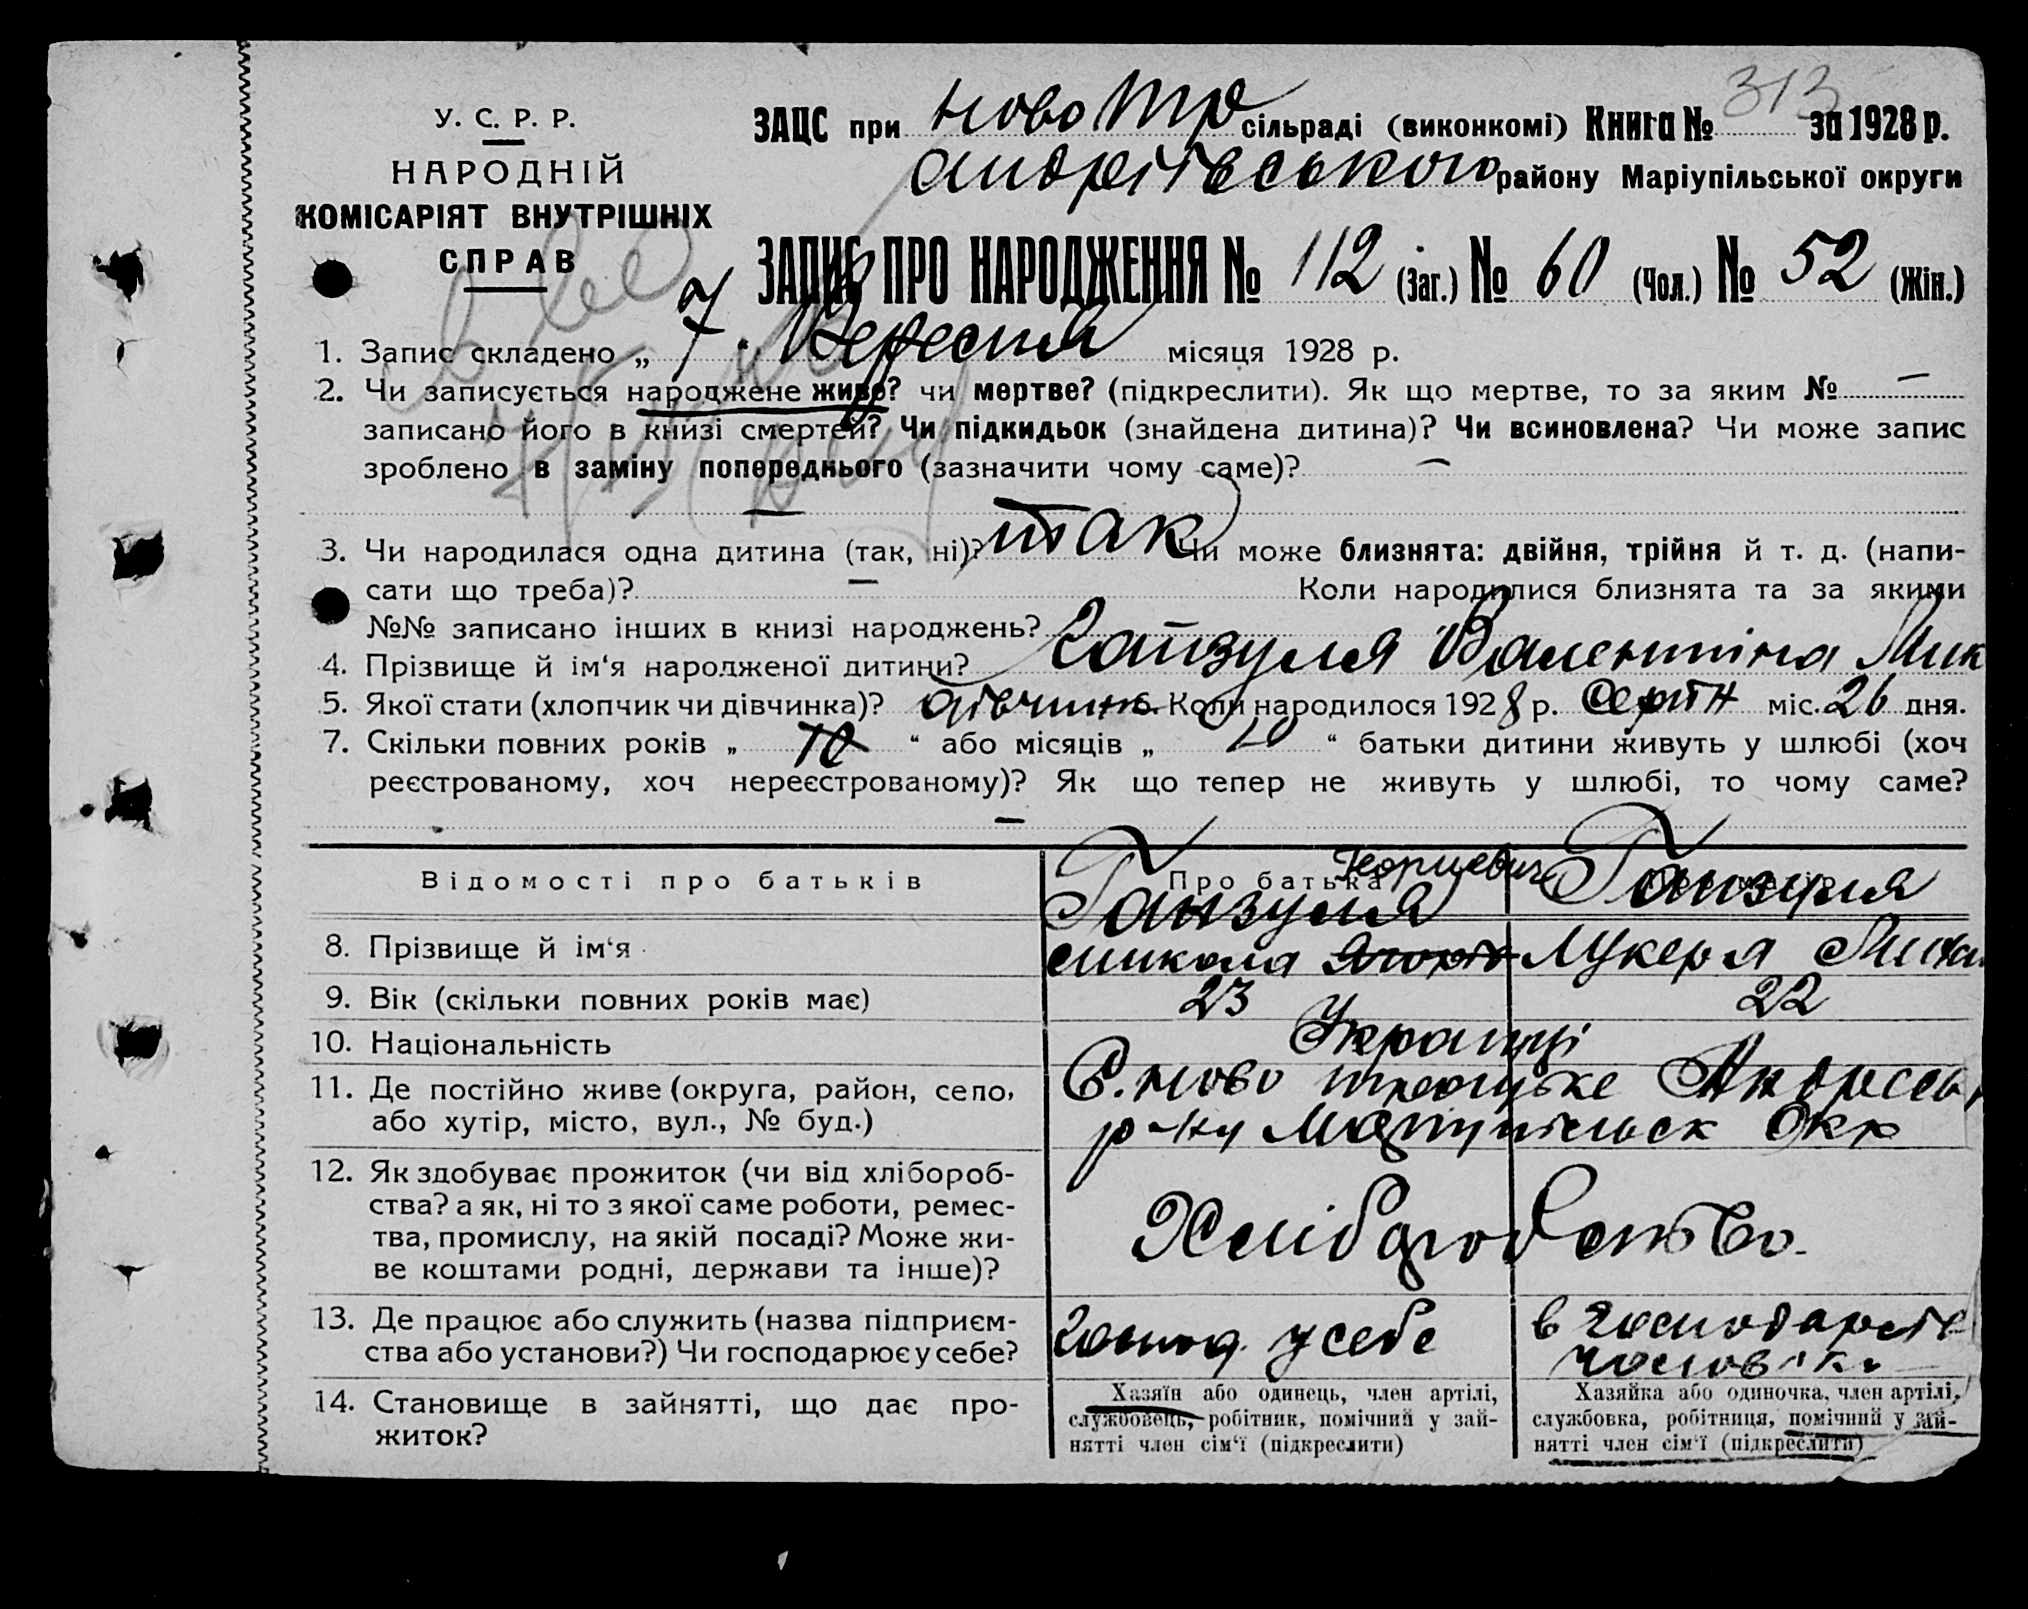 У. С. Р. Р.
НАРОДНІЙ
КОМІСАРІЯТ ВНУТРІШНІХ
СПРАВ
313
ЗАЦС при Ново Тро сільраді (виконкомі) Книга № за 1928 р.
Андріївського району Маріупільської округи
ЗАПИС ПРО НАРОДЖЕННЯ № 112 (Заг.) № 60 (Чол.) № 52 (Жін.)
1. Запис складено „ 7 “ Вересня місяця 1928 р.
2. Чи записується народжене живе? чи мертве? (підкреслити). Як що мертве, то за яким № —
записано його в книзі смертей? Чи підкидьок (знайдена дитина)? Чи всиновлена? Чи може запис
зроблено в заміну попереднього (зазначити чому саме)? —
—
3. Чи народилася одна дитина (так, ні)? так Чи може близнята: двійня, трійня й т. д. (напи-
сати що треба)? — Коли народилися близнята та за якими
№№ записано інших в книзі народжень?
4. Прізвище й ім‘я народженої дитини? Ганзуля Валентіна Мик
5. Якої стати (хлопчик чи дівчинка)? дівчин 6. Коли народилося 1928 р. Серпн міс. 26 дня.
7. Скільки повних років „ “ або місяців „ 10 “ батьки дитини живуть у шлюбі (хоч
реєстрованому, хоч нереєстрованому)? Як що тепер не живуть у шлюбі, то чому саме?
—
Відомості про батьків Про батька Георгиевич
Ганзуля Ганзуля
8. Прізвище й ім‘я Микола Мукеря Миха
9. Вік (скільки повних років має) 23 22
10. Національність Украінці
11. Де постійно живе (округа, район, село, С. Ново троицьке Андреев
або хутір, місто, вул., № буд.) р-ну Маріупільск Окр
12. Як здобуває прожиток (чи від хлібороб-
ства? а як, ні то з якої саме роботи, ремес-
тва, промислу, на якій посаді? Може жи-
ве коштами родні, держави та інше)?
Хліборобство.
13. Де працює або служить (назва підприєм-
ства або установи?) Чи господарює у себе?
Господ. у себе
в господарстве
чоловіка
14. Становище в зайнятті, що дає про-
житок?
Хазяїн або одинець, член артілі,
службовець, робітник, помічний у зай-
нятті член сім‘ї (підкреслити)
Хазяйка або одиночка, член артілі,
службовка, робітниця, помічний у зай-
нятті член сім‘ї (підкреслити)